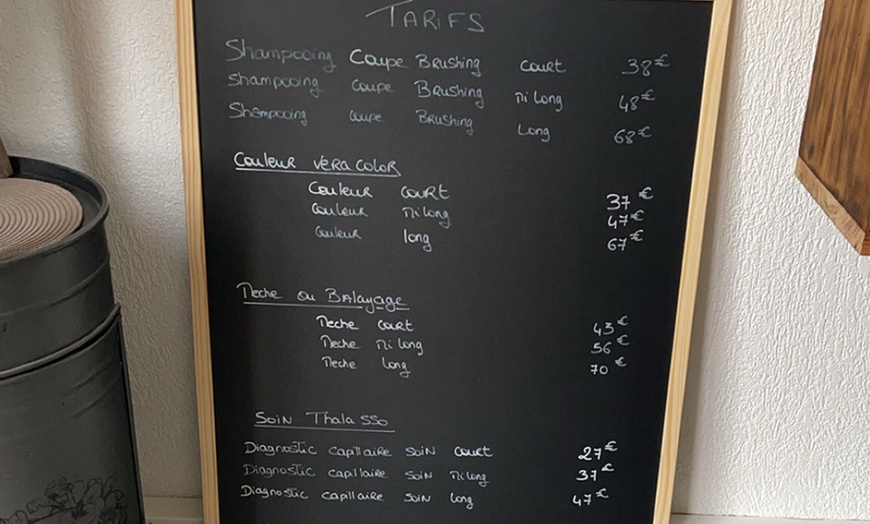 TARIFS
Shampooing Coupe Brushing court 38€
Shampooing coupe Brushing mi long 48€
Shampooing coupe Brushing long 68€
Couleur VERA COLOR
Couleur court 37€
Couleur mi long 47€
Couleur long 67€
Meche ou Balayage
Meche court 43€
Meche mi long 56€
Meche long 70€
Soin Thalasso
Diagnostic capillaire soin court 27€
Diagnostic capillaire soin mi long 37€
Diagnostic capillaire soin long 47€